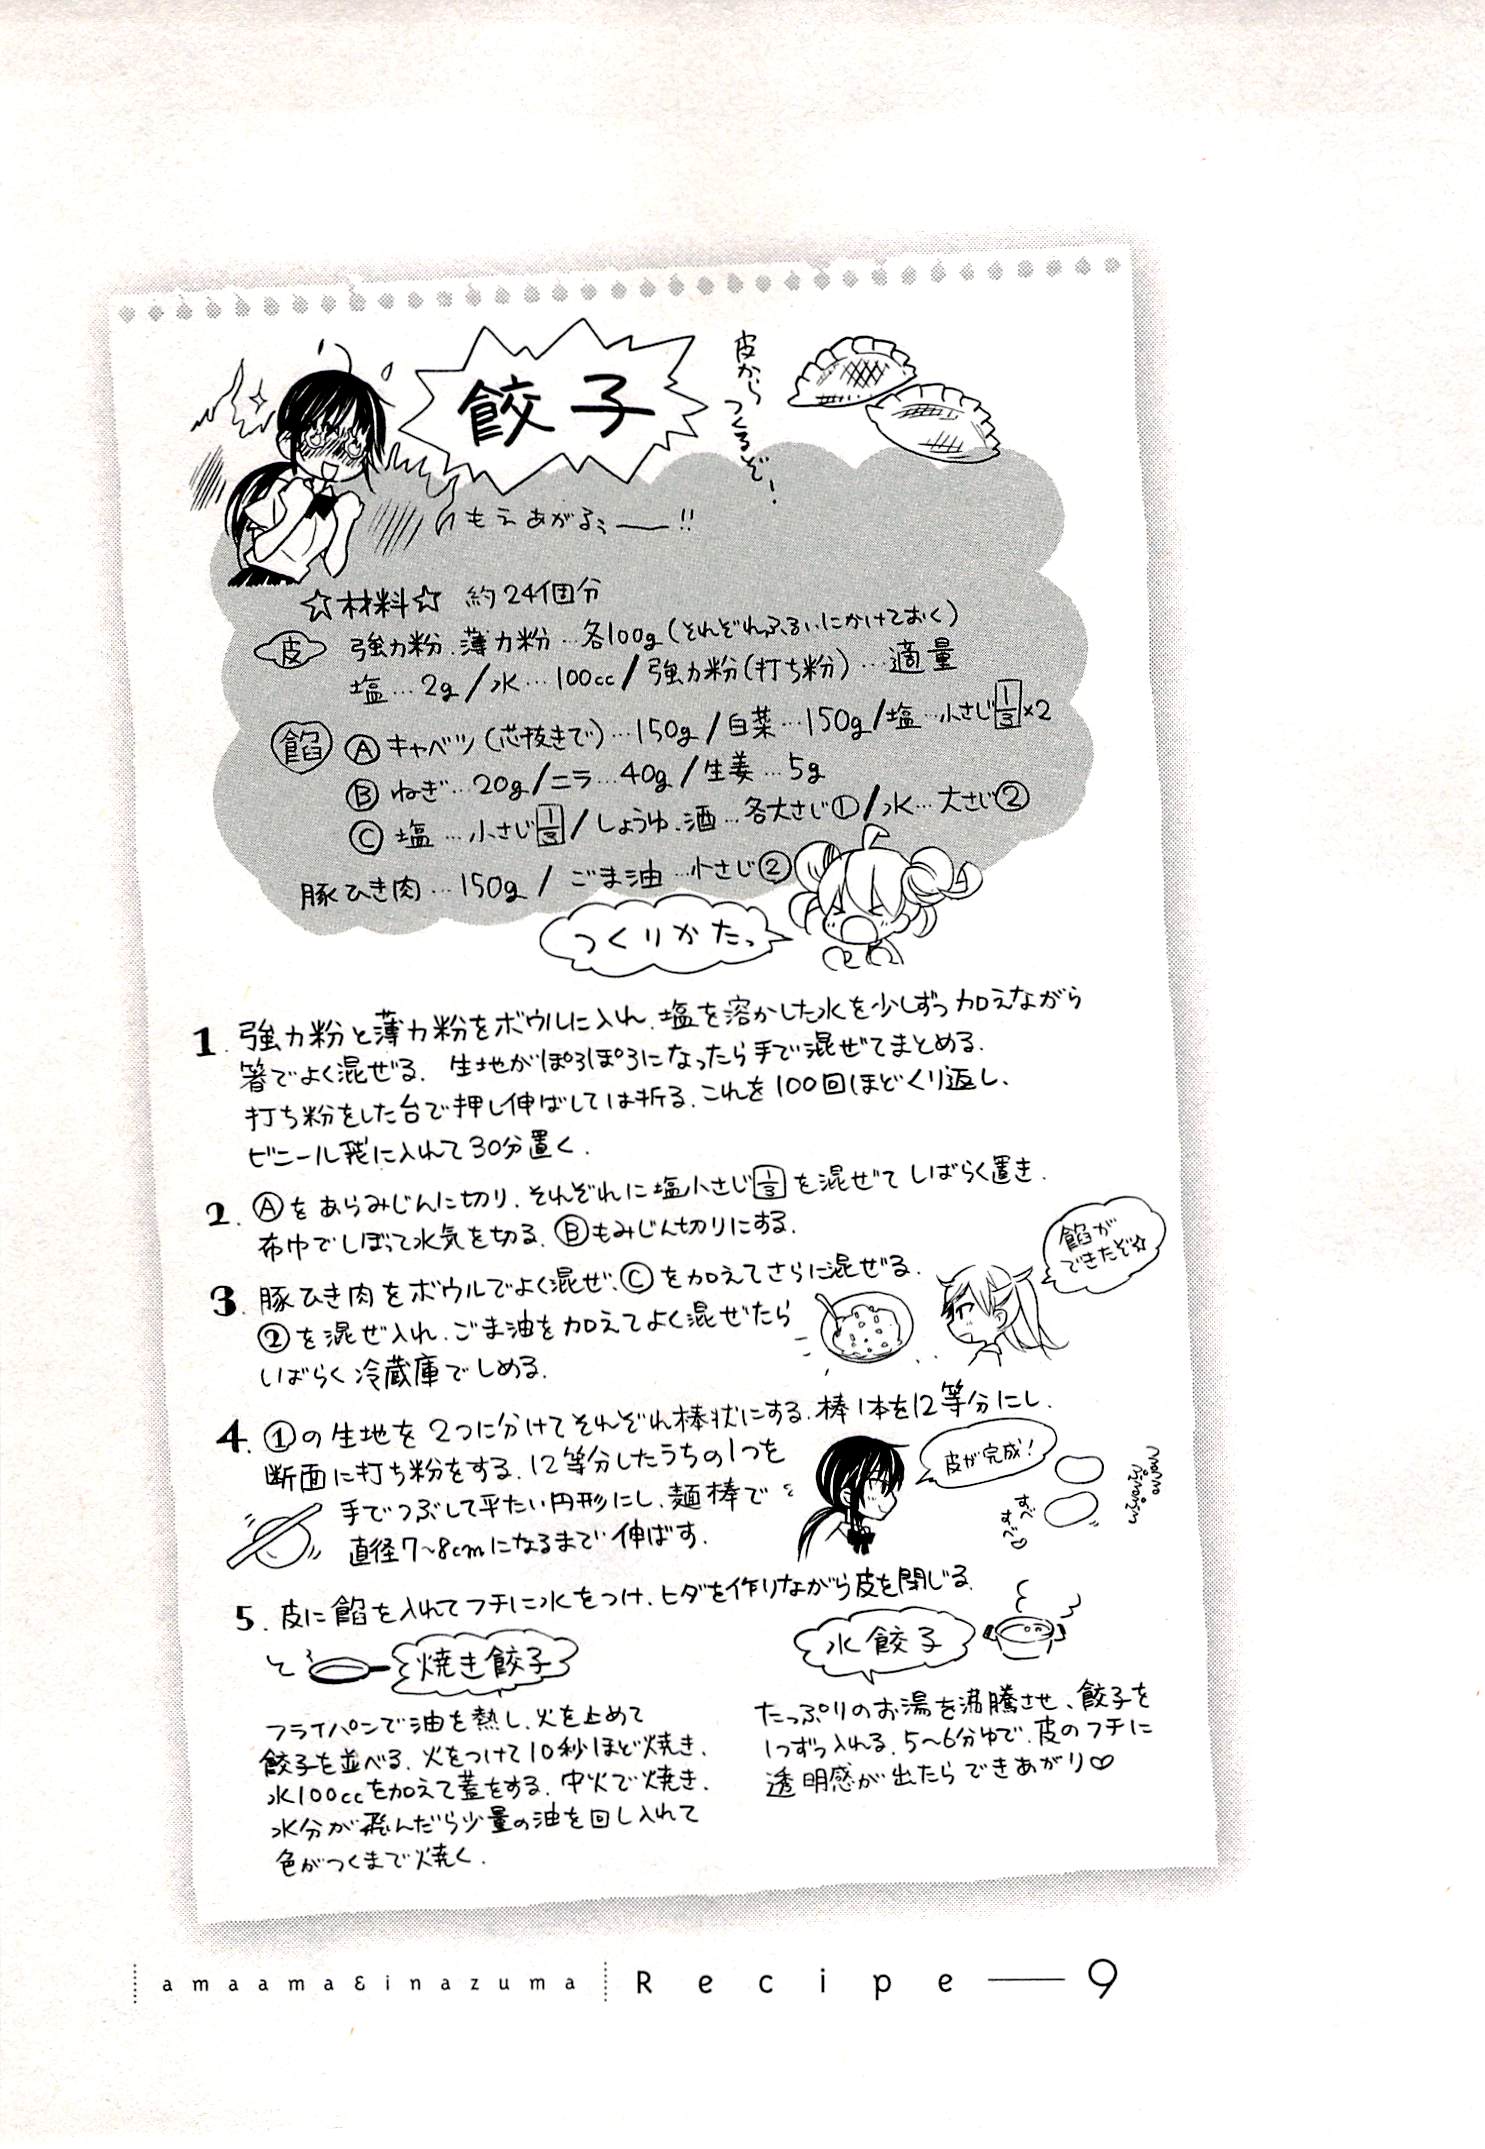 餃子
皮から
つくるぞ!
もえあがるぅ——!!
☆材料☆ 約24個分
皮 強力粉、薄力粉…各100g(それぞれふるいにかけておく)
塩…2g/水…100cc/強力粉(打ち粉)…適量
餡 Ⓐ キャベツ(芯抜きで)…150g/白菜…150g/塩…小さじ1/3×2
Ⓑ ねぎ…20g/ニラ…40g/生姜…5g
Ⓒ 塩…小さじ1/3/しょうゆ、酒…各大さじ①/水…大さじ②
豚ひき肉…150g/ごま油…小さじ②
つくりかたっ
1. 強力粉と薄力粉をボウルに入れ、塩を溶かした水を少しずつ加えながら
箸でよく混ぜる。生地がぽろぽろになったら手で混ぜてまとめる。
打ち粉をした台で押し伸ばしては折る。これを100回ほどくり返し、
ビニール袋に入れて30分置く。
2. Ⓐをあらみじんに切り、それぞれに塩小さじ1/3を混ぜてしばらく置き、
布巾でしぼって水気を切る。Ⓑもみじん切りにする。
3. 豚ひき肉をボウルでよく混ぜ、Ⓒを加えてさらに混ぜる。
②を混ぜ入れ、ごま油を加えてよく混ぜたら
しばらく冷蔵庫でしめる。
餡が
できたぞ☆
4. ①の生地を2つに分けてそれぞれ棒状にする。棒1本を12等分にし、
断面に打ち粉をする。12等分したうちの1つを
手でつぶして平たい円形にし、麺棒で
直径7~8cmになるまで伸ばす。
皮が完成!
すべ
すべ♡
5. 皮に餡を入れてフチに水をつけ、ヒダを作りながら皮を閉じる。
焼き餃子
フライパンで油を熱し、火を止めて
餃子を並べる。火をつけて10秒ほど焼き、
水100ccを加えて蓋をする。中火で焼き、
水分が飛んだら少量の油を回し入れて
色がつくまで焼く。
水餃子
たっぷりのお湯を沸騰させ、餃子を
1つずつ入れる。5~6分ゆで、皮のフチに
透明感が出たらできあがり♡
amaama&inazuma Recipe——9